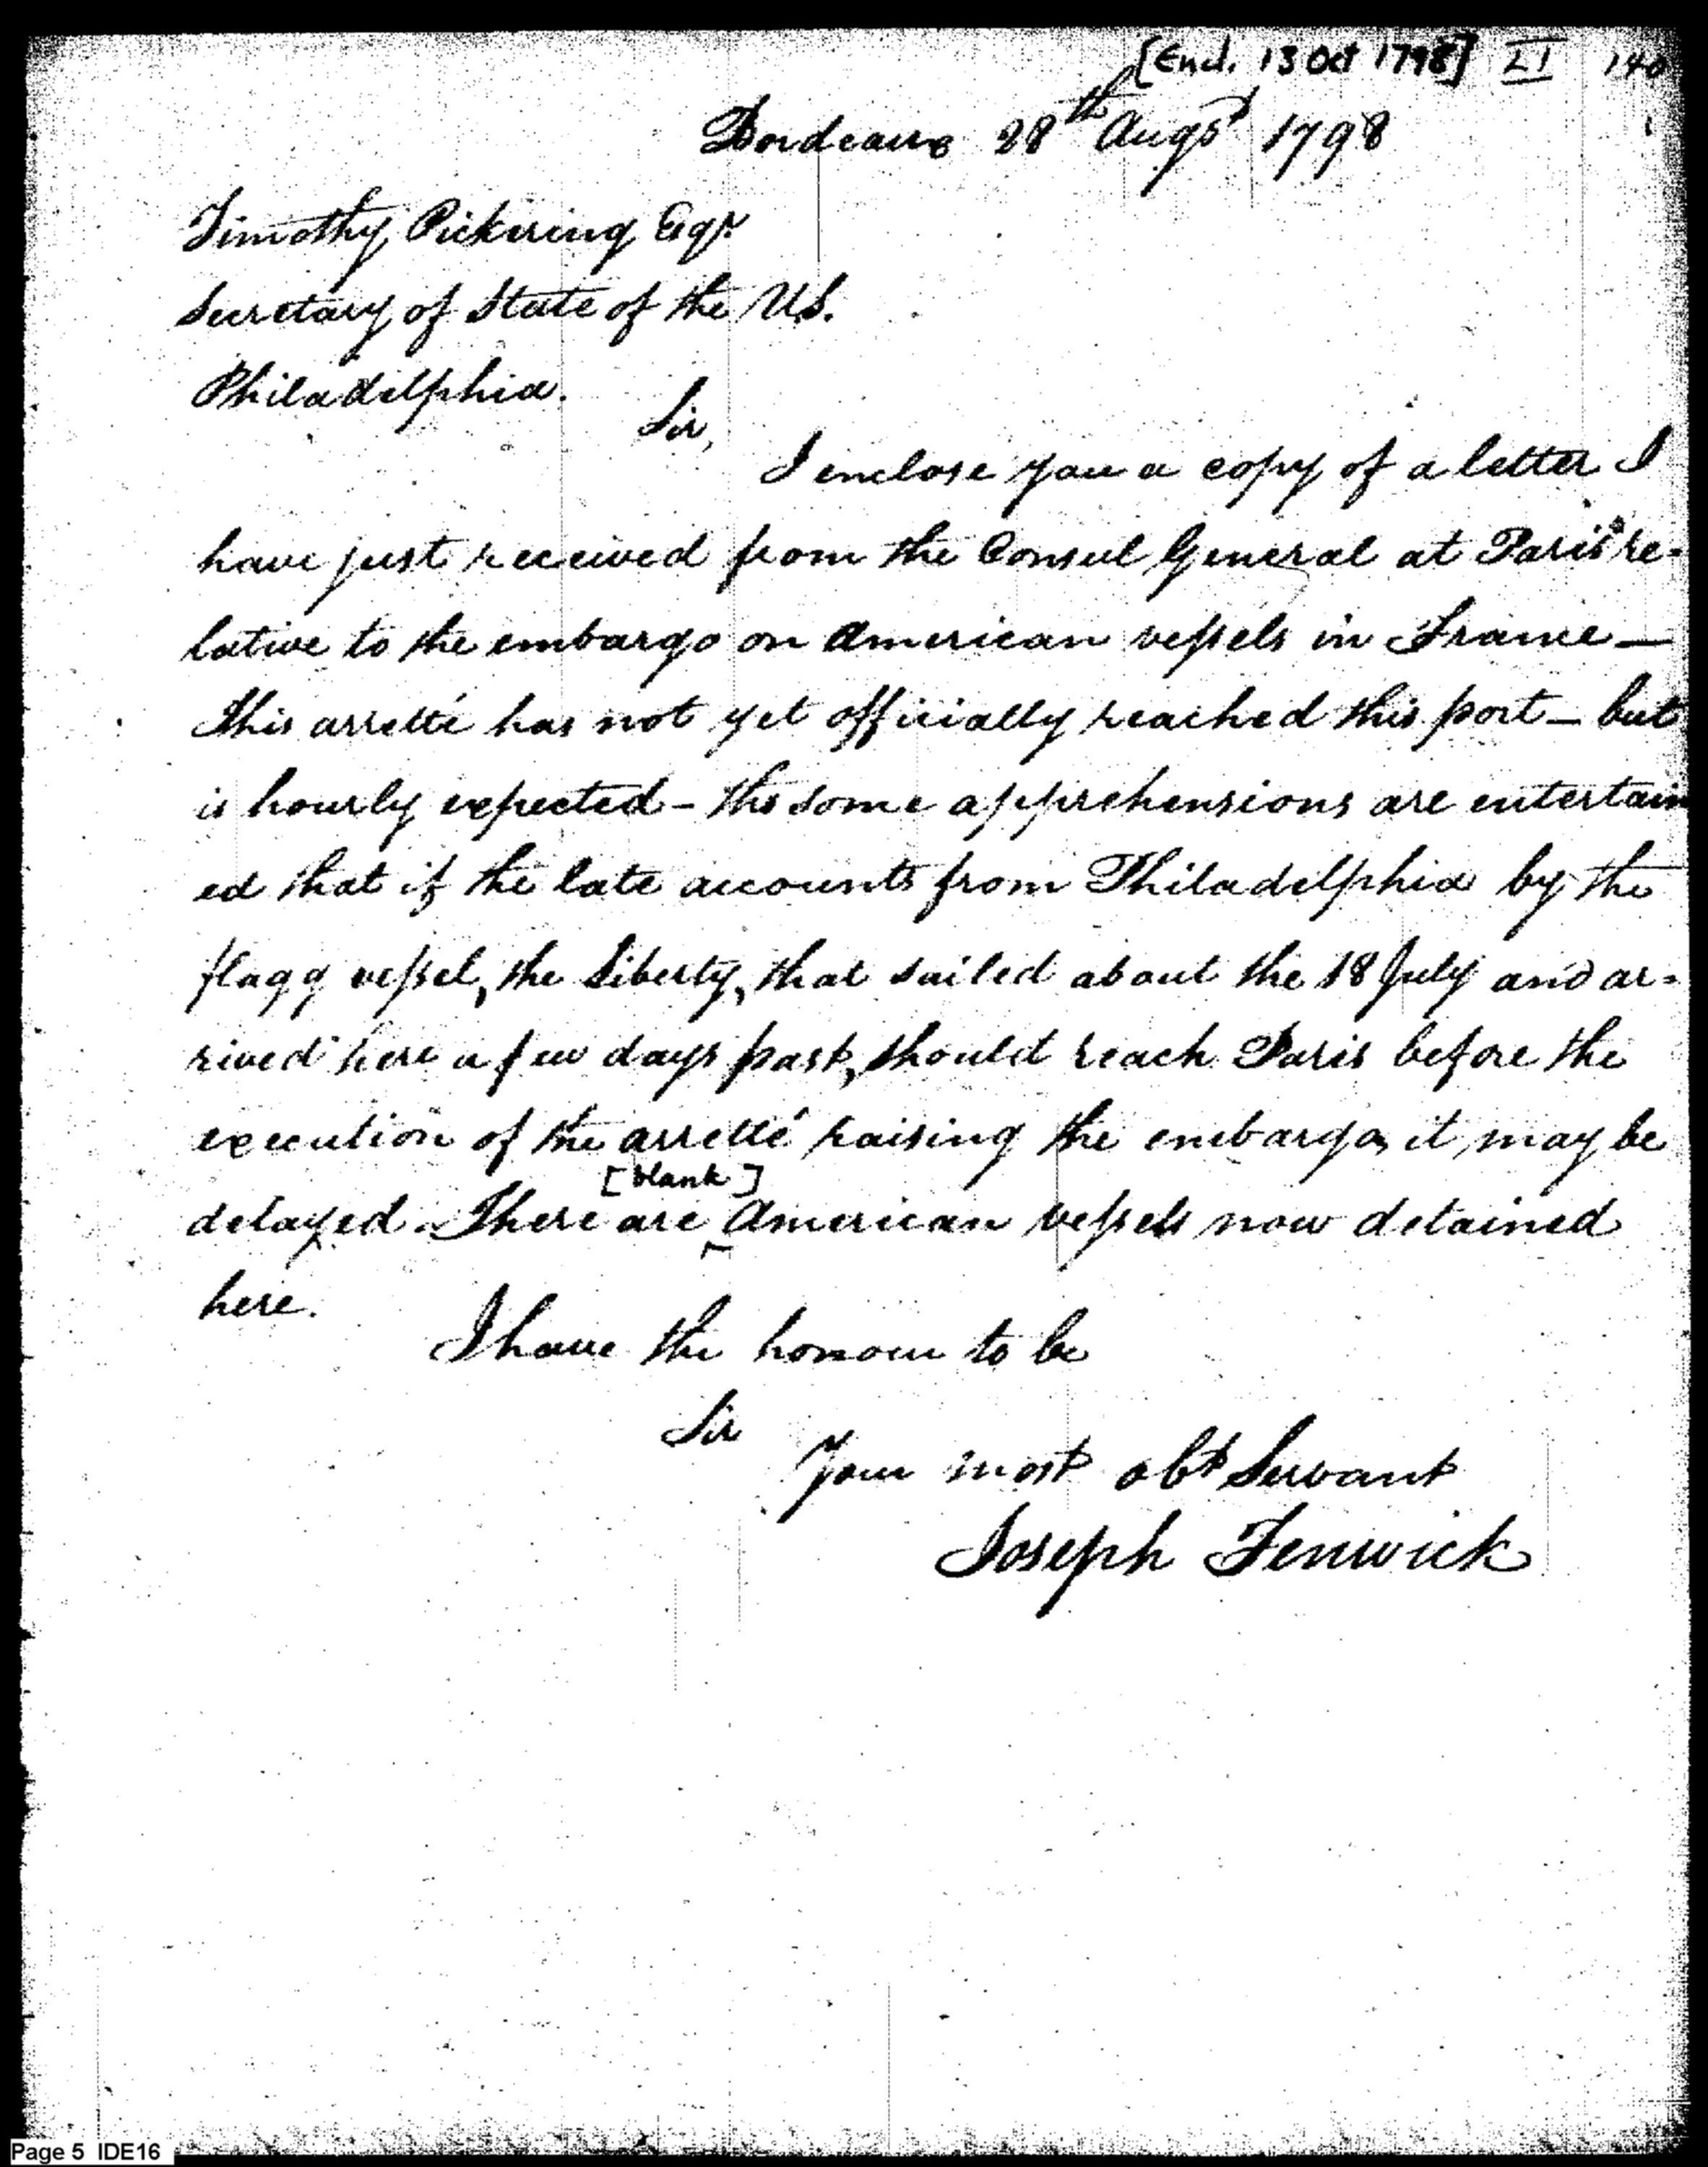 [Encl. 13 Oct 1798] LI 140
Bordeaux 28th Augst 1798
Timothy Pickering Esqr.
Secretary of State of the U.S.
Philadelphia.
Sir,
I enclose you a copy of a letter I
have just received from the Consul General at Paris re-
lative to the embargo on American vessels in France —
this arretté has not yet officially reached this port — but
is hourly expected - tho some apprehensions are entertain
ed that if the late accounts from Philadelphia by the
flagg vessel, the Liberty, that sailed about the 18 July and ar=
rived here a few days past, should reach Paris before the
execution of the arretté raising the embargo, it may be
[blank]
delayed. There are American vessels now detained
here.
I have the honour to be
Sir
Your most obt Servant
Joseph Fenwick
Page 5 IDE16